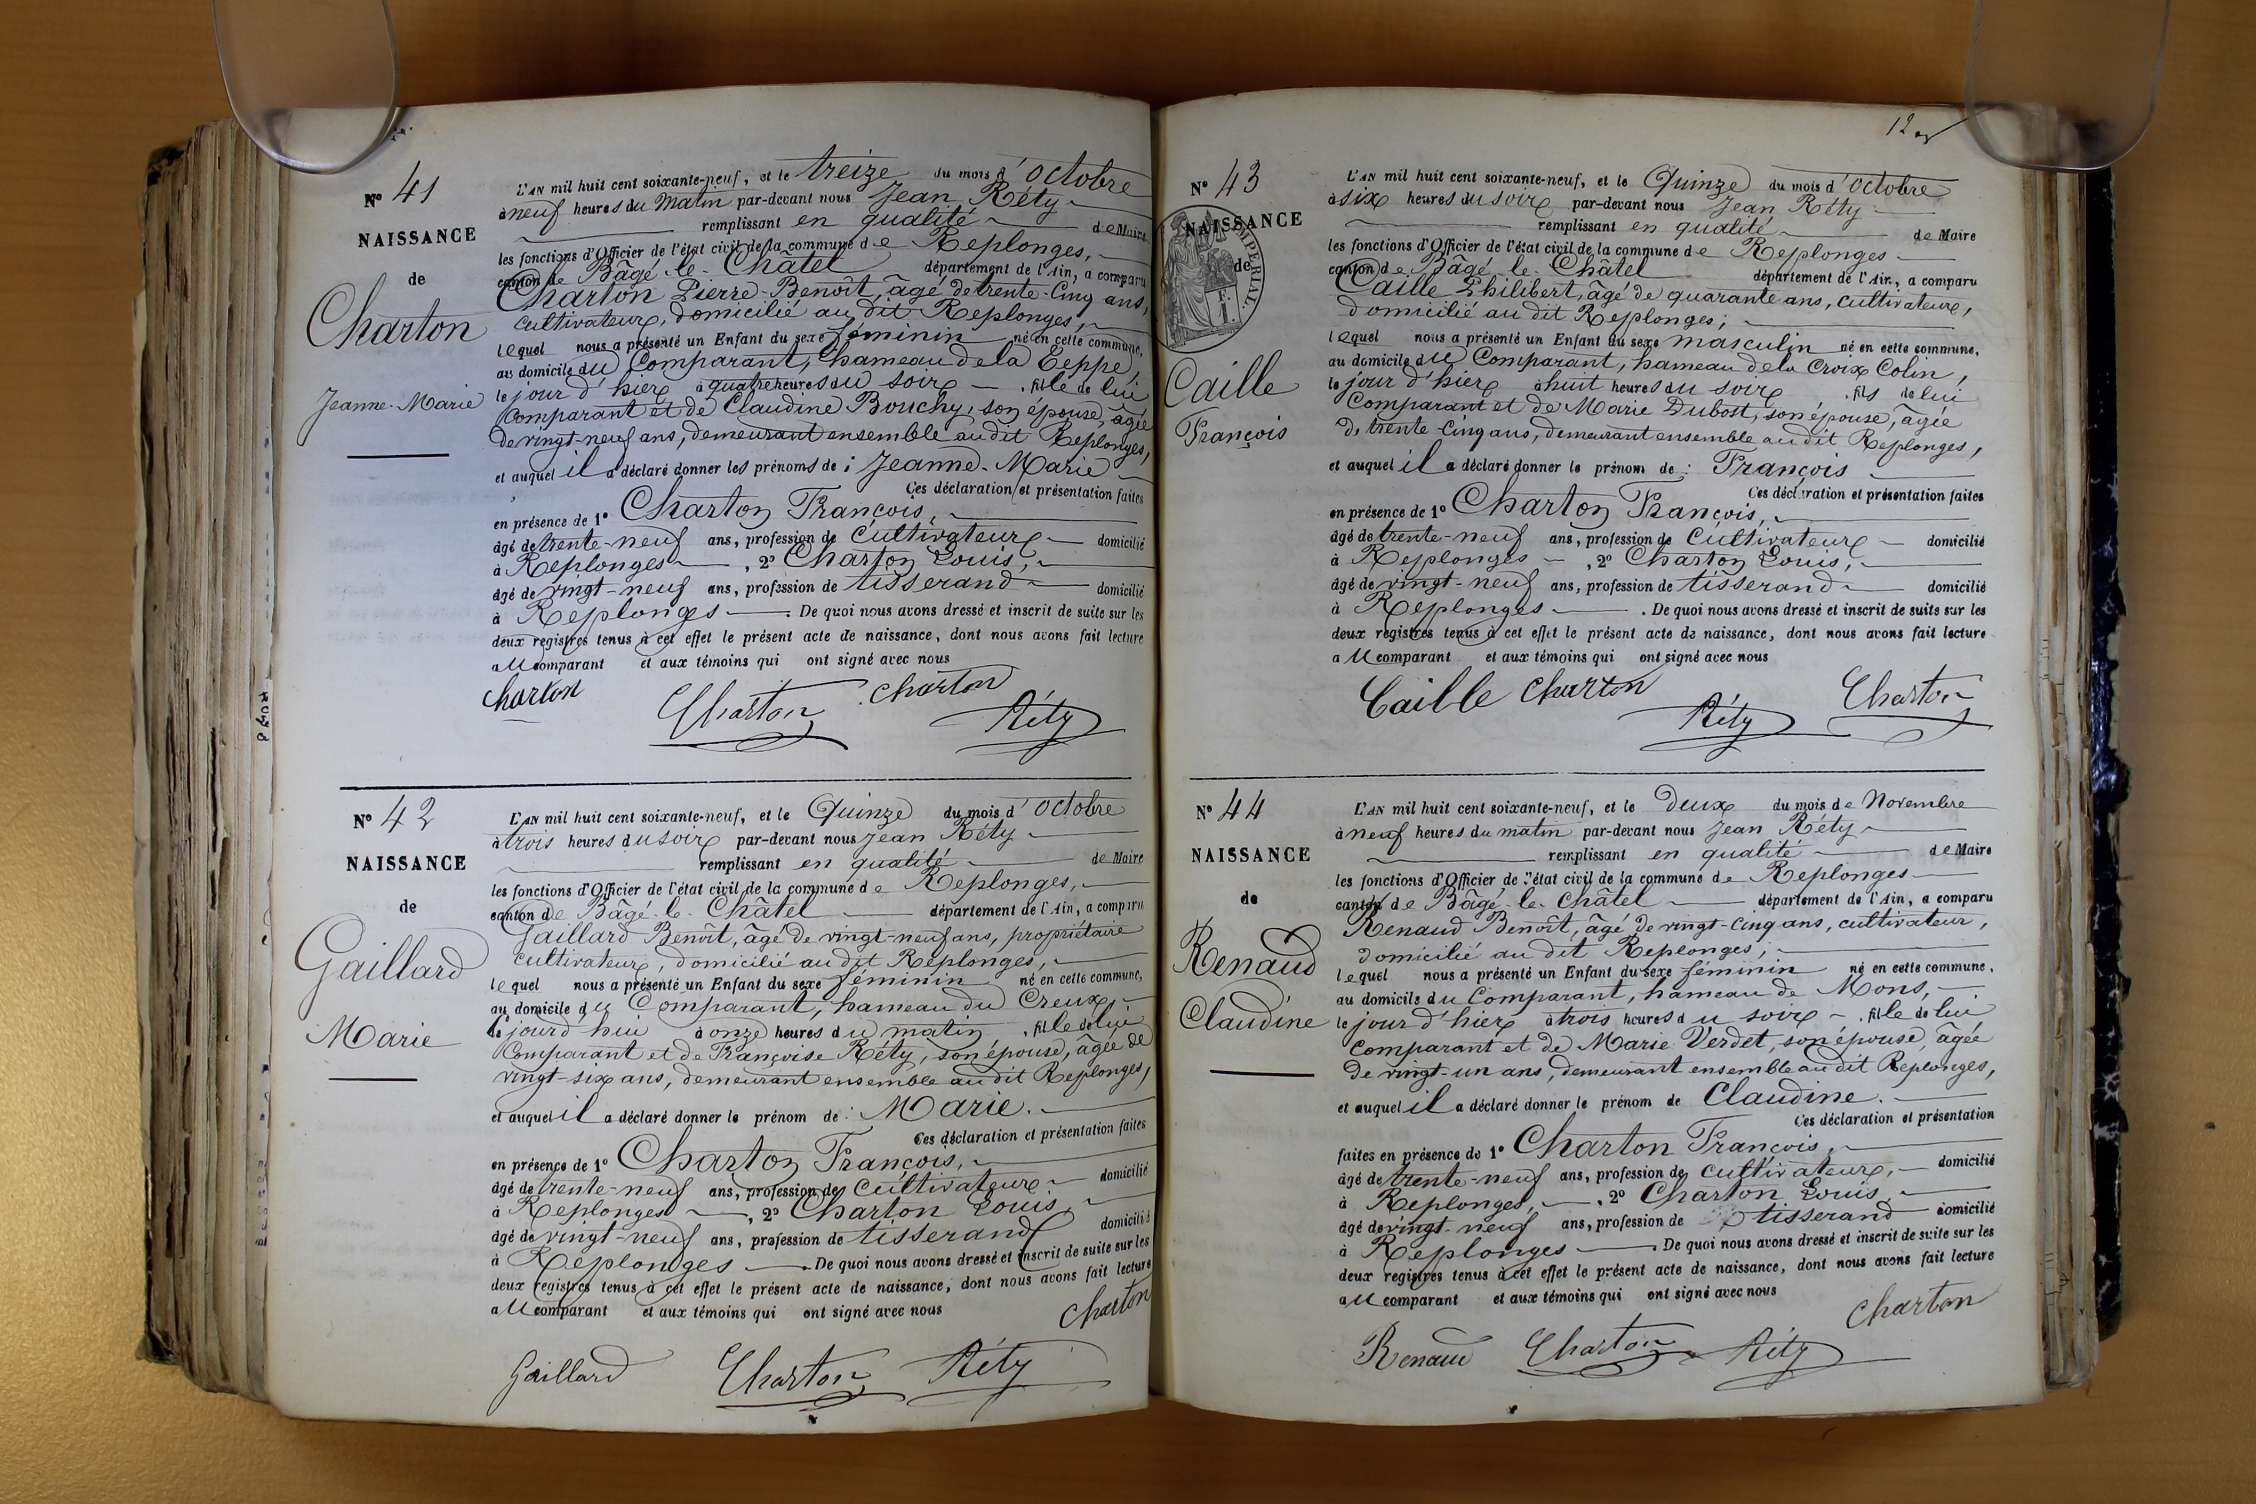 N° 41
NAISSANCE
de
Charton
Jeanne-Marie
L'AN mil huit cent soixante-neuf, et le treize du mois d'Octobre
à neuf heures du matin par-devant nous Jean Réty
remplissant en qualité de Maire
les fonctions d'Officier de l'état civil de la commune de Replonges,
canton de Bâgé-le-Châtel département de l'Ain, a comparu
Charton Pierre-Benoît, âgé de trente-cinq ans,
cultivateur, domicilié au dit Replonges,
lequel nous a présenté un Enfant du sexe féminin né en cette commune,
au domicile du Comparant, hameau de la Teppe,
le jour d'hier à quatre heures du soir - , fille de lui
Comparant et de Claudine Bouchy, son épouse, âgée
de vingt-neuf ans, demeurant ensemble au dit Replonges,
et auquel il a déclaré donner les prénoms de : Jeanne-Marie
Ces déclaration et présentation faites
en présence de 1° Charton François,
âgé de trente-neuf ans, profession de Cultivateur domicilié
à Replonges , 2° Charton Louis,
âgé de vingt-neuf ans, profession de tisserand domicilié
à Replonges . De quoi nous avons dressé et inscrit de suite sur les
deux registres tenus à cet effet le présent acte de naissance, dont nous avons fait lecture
au comparant et aux témoins qui ont signé avec nous
charton Charton charton Réty
N° 42
NAISSANCE
de
Gaillard
Marie
L'AN mil huit cent soixante-neuf, et le Quinze du mois d'Octobre
à trois heures du soir par-devant nous Jean Réty
remplissant en qualité de Maire
les fonctions d'Officier de l'état civil de la commune de Replonges,
canton de Bâgé-le-Châtel département de l'Ain, a comparu
Gaillard Benoît, âgé de vingt-neuf ans, propriétaire
cultivateur, domicilié au dit Replonges,
lequel nous a présenté un Enfant du sexe féminin né en cette commune,
au domicile du Comparant, hameau du Creux,
le jourd'hui à onze heures du matin , fille de lui
Comparant et de Françoise Réty, son épouse, âgée de
vingt-six ans, demeurant ensemble au dit Replonges,
et auquel il a déclaré donner le prénom de : Marie.
Ces déclaration et présentation faites
en présence de 1° Charton François,
âgé de trente-neuf ans, profession de Cultivateur domicilié
à Replonges , 2° Charton Louis,
âgé de vingt-neuf ans, profession de tisserand domicilié
à Replonges . De quoi nous avons dressé et inscrit de suite sur les
deux registres tenus à cet effet le présent acte de naissance, dont nous avons fait lecture
au comparant et aux témoins qui ont signé avec nous
Gaillard Charton Réty charton
12
N° 43
NAISSANCE
de
IMPERIAL.
Caille
François
L'AN mil huit cent soixante-neuf, et le Quinze du mois d'Octobre
à six heures du soir par-devant nous Jean Réty
remplissant en qualité de Maire
les fonctions d'Officier de l'état civil de la commune de Replonges
canton de Bâgé-le-Châtel département de l'Ain, a comparu
Caille Philibert, âgé de quarante ans, cultivateur,
domicilié au dit Replonges;
lequel nous a présenté un Enfant du sexe masculin né en cette commune,
au domicile du Comparant, hameau de la Croix Colin,
le jour d'hier à huit heures du soir , fils de lui
Comparant et de Marie Dubost, son épouse, âgée
de trente-cinq ans, demeurant ensemble au dit Replonges,
et auquel il a déclaré donner le prénom de : François
Ces déclaration et présentation faites
en présence de 1° Charton François,
âgé de trente-neuf ans, profession de Cultivateur domicilié
à Replonges , 2° Charton Louis,
âgé de vingt-neuf ans, profession de tisserand domicilié
à Replonges . De quoi nous avons dressé et inscrit de suite sur les
deux registres tenus à cet effet le présent acte de naissance, dont nous avons fait lecture
au comparant et aux témoins qui ont signé avec nous
Caille charton Réty Charton
N° 44
NAISSANCE
de
Renaud
Claudine
L'AN mil huit cent soixante-neuf, et le deux du mois de Novembre
à neuf heures du matin par-devant nous Jean Réty
remplissant en qualité de Maire
les fonctions d'Officier de l'état civil de la commune de Replonges
canton de Bâgé-le-Châtel département de l'Ain, a comparu
Renaud Benoît, âgé de vingt-cinq ans, cultivateur,
domicilié au dit Replonges;
lequel nous a présenté un Enfant du sexe féminin né en cette commune,
au domicile du Comparant, hameau de Mons,
le jour d'hier à trois heures du soir - , fille de lui
comparant et de Marie Verdet, son épouse, âgée
de vingt-un ans, demeurant ensemble au dit Replonges,
et auquel il a déclaré donner le prénom de Claudine.
Ces déclaration et présentation
faites en présence de 1° Charton François,
âgé de trente-neuf ans, profession de cultivateur, domicilié
à Replonges, , 2° Charton Louis,
âgé de vingt-neuf ans, profession de tisserand domicilié
à Replonges . De quoi nous avons dressé et inscrit de suite sur les
deux registres tenus à cet effet le présent acte de naissance, dont nous avons fait lecture
au comparant et aux témoins qui ont signé avec nous
Renaud Charton Réty charton